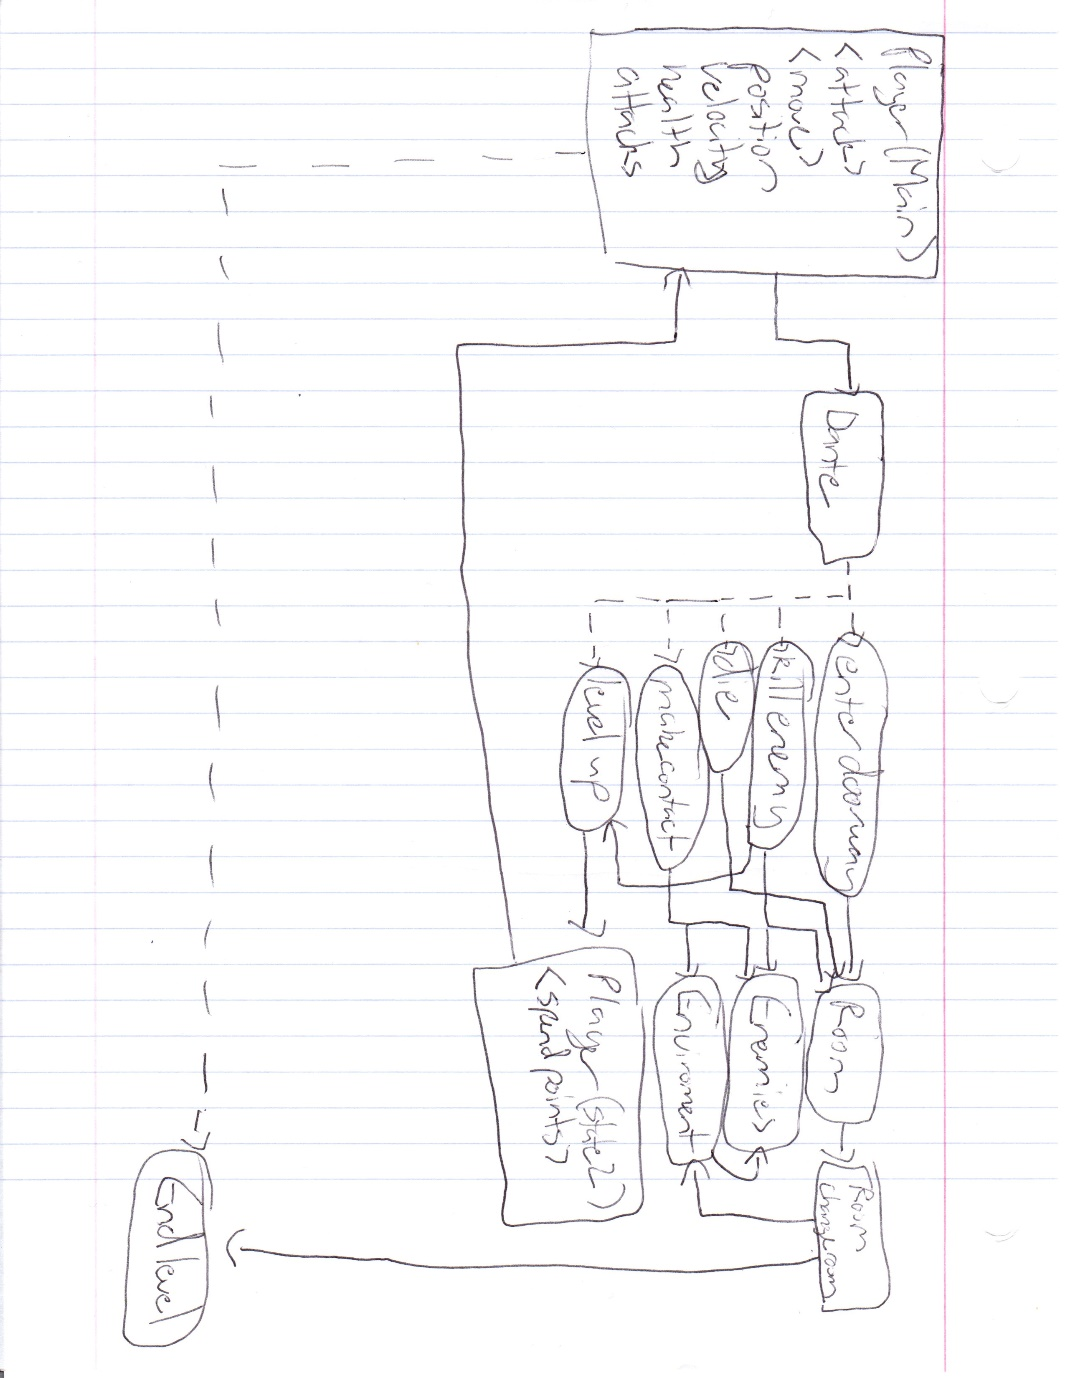 Player (Main)
<attack>
<move>
Position
Velocity
health
attacks
Dante
enter doorway
kill enemy
die
make contact
level up
Room
Enemies
Enviroment
Player (State 2)
<spend points>
Room
change room
End level